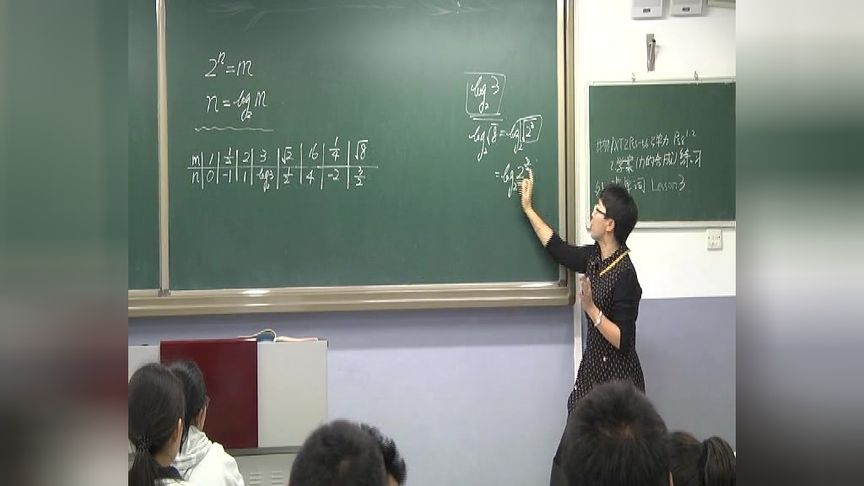 2ⁿ=m
n=log₂m
m 1 1/2 2 3 √2 16 1/4 √8
n 0 -1 1 log₂3 1/2 4 -2 3/2
log₂3
log₂√8=log₂√2³
=log₂2^(3/2)
2.学案(力的合成)练习
Lesson 3